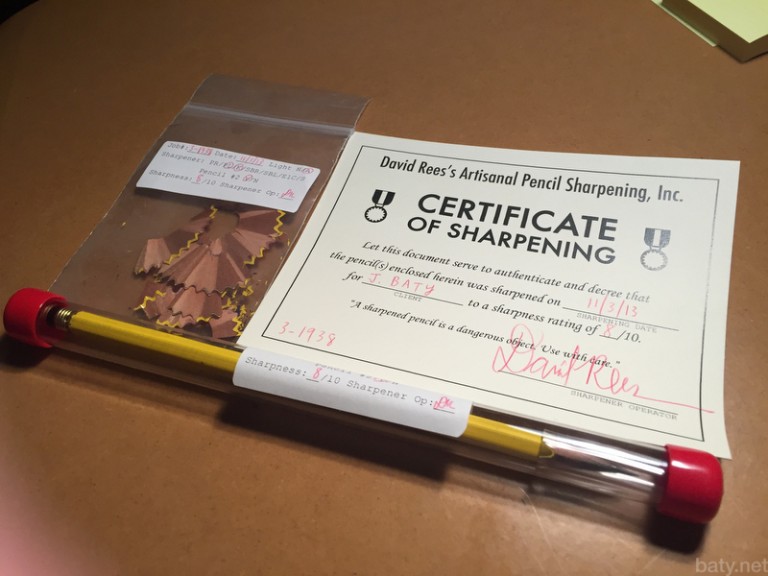 Job#: 3-1938 Date: 11/3/13 Light
Sharpener:
Pencil #2
Sharpness: 8/10 Sharpener Op:
David Rees's Artisanal Pencil Sharpening, Inc.
CERTIFICATE
OF SHARPENING
Let this document serve to authenticate and decree that
the pencil(s) enclosed herein was sharpened on 11/3/13
SHARPENING DATE
for J. BATY to a sharpness rating of 8/10.
CLIENT
"A sharpened pencil is a dangerous object. Use with care."
3-1938
David Rees
SHARPENER OPERATOR
Sharpness: 8/10 Sharpener Op: DR
baty.net